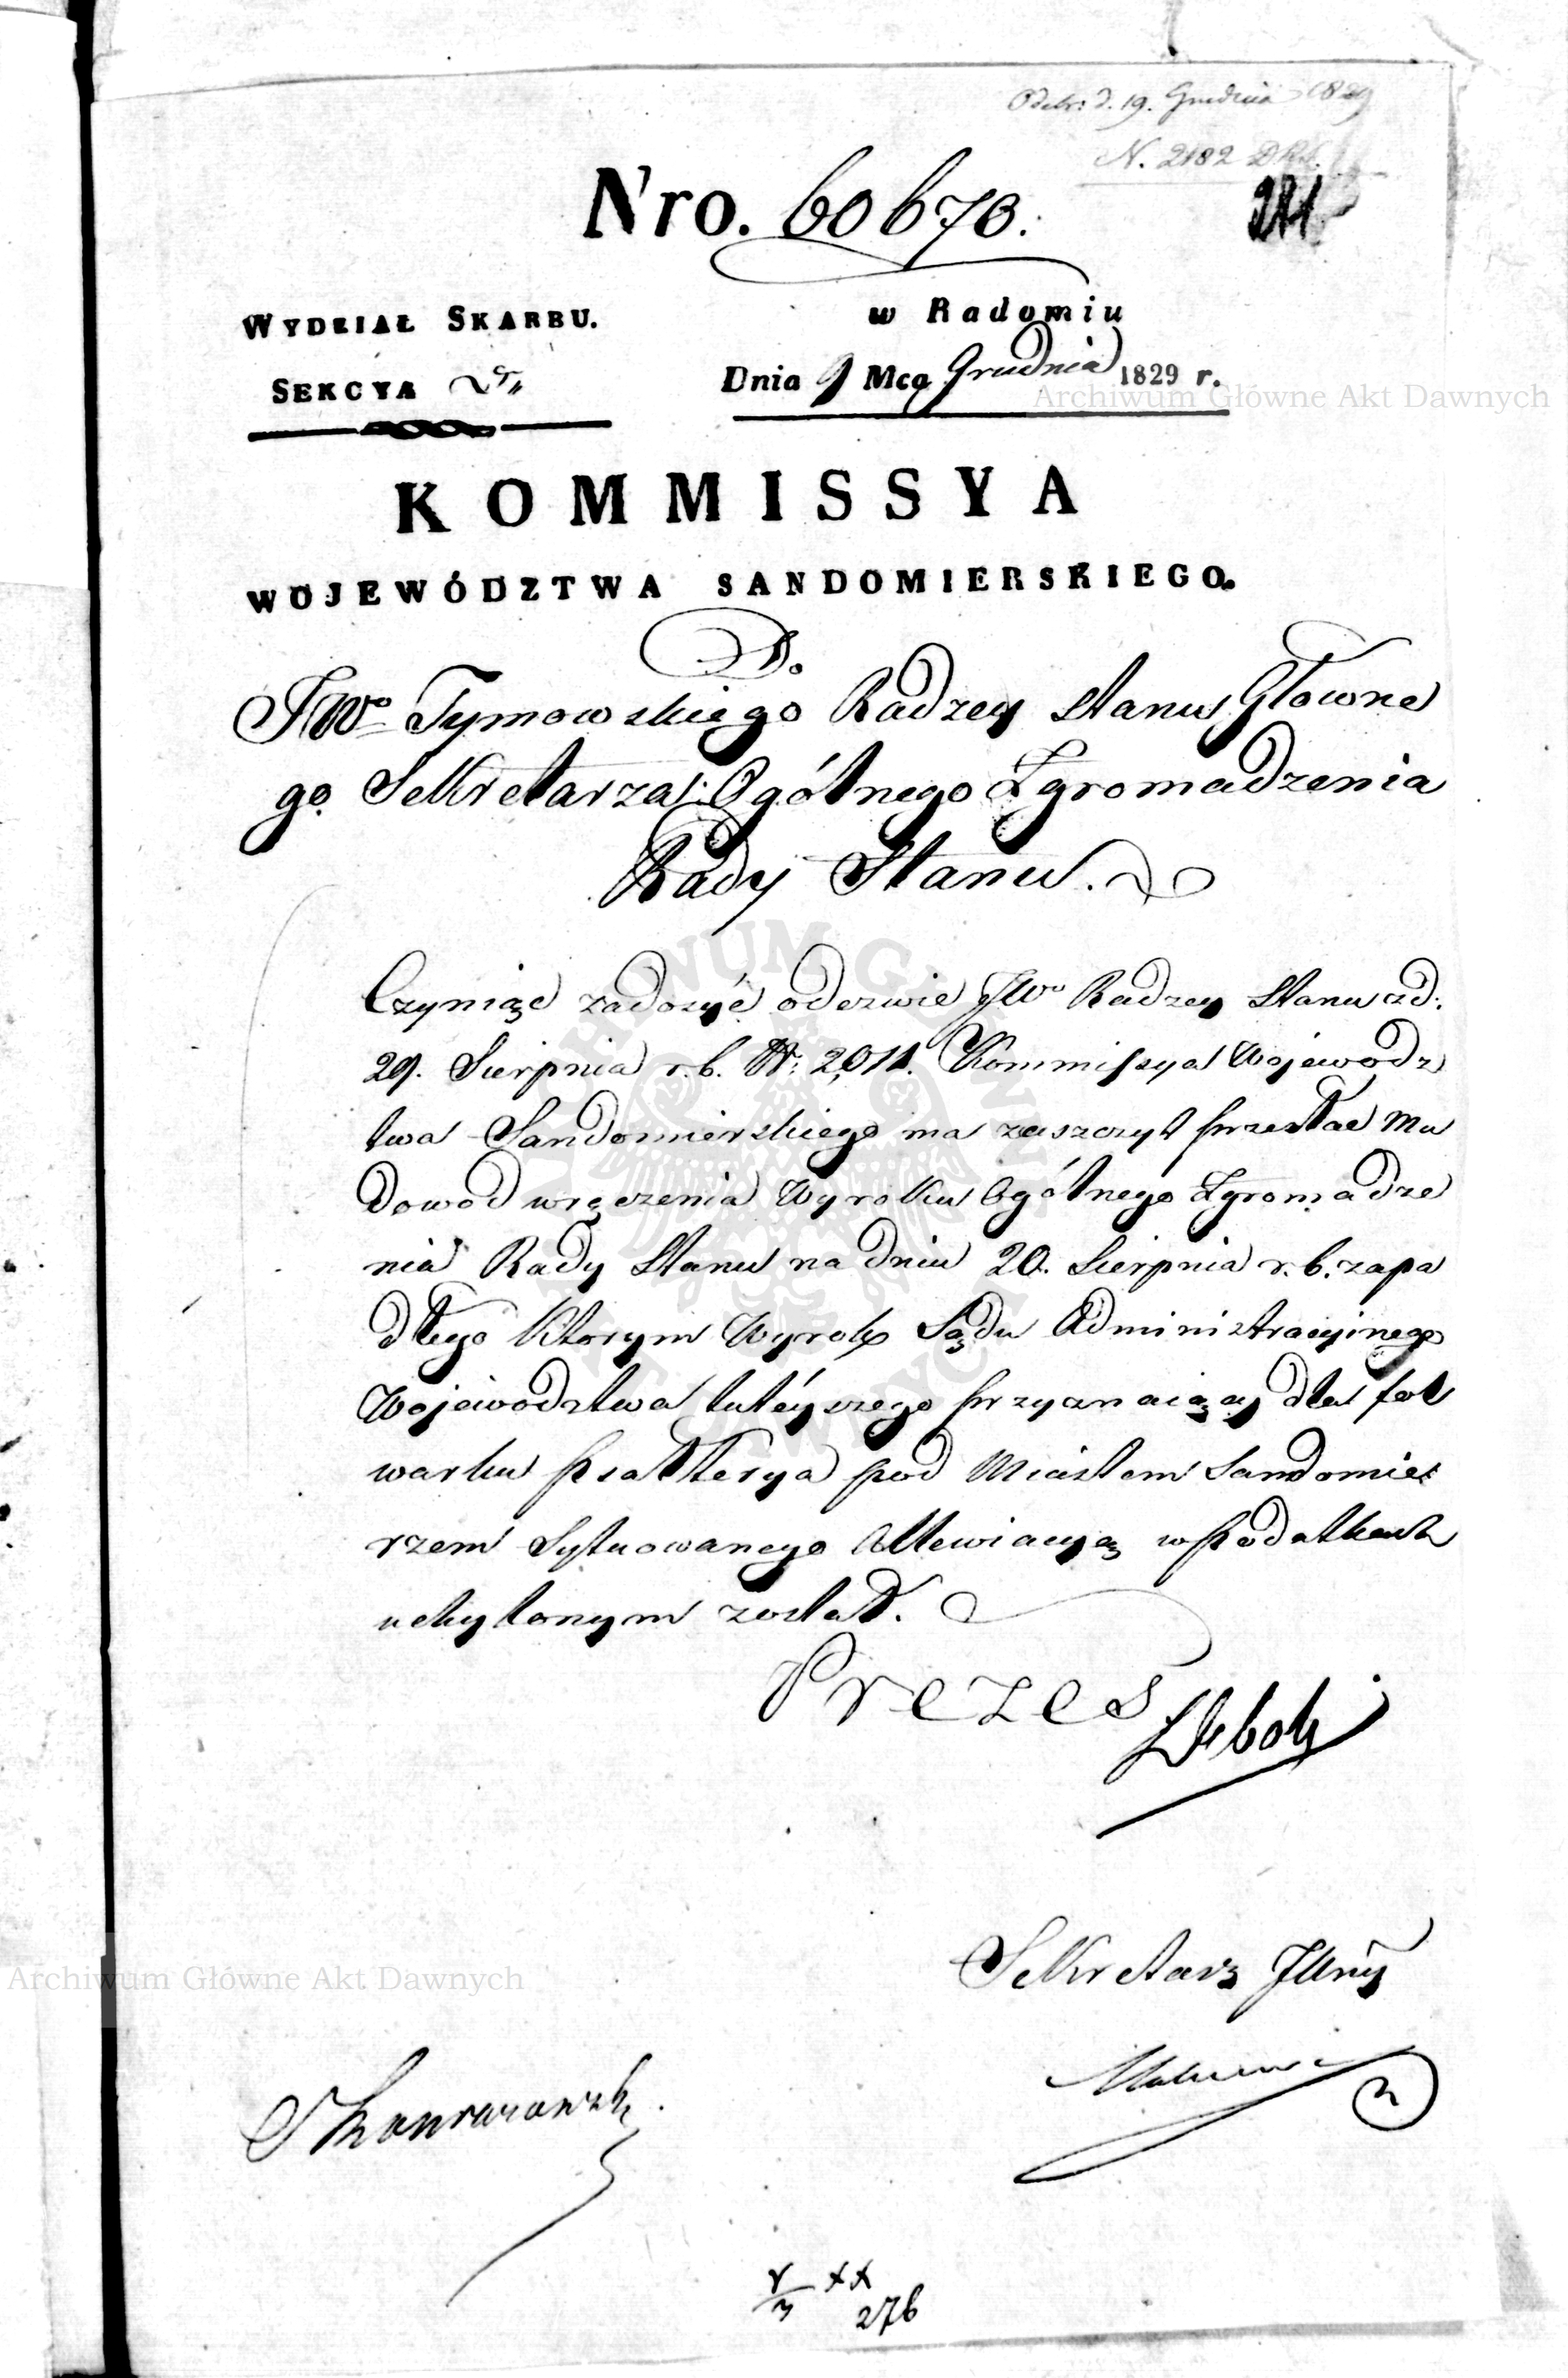 Odebr: d. 19. Grudnia 1829
N. 2182
Nro. 60670.
211
WYDZIAŁ SKARBU.
w Radomiu
SEKCYA
Dnia 9 Mca Grudnia 1829 r.
Archiwum Główne Akt Dawnych
KOMMISSYA
WOJEWÓDZTWA SANDOMIERSKIEGO.
Do
JWo Tymowskiego Radzcy Stanu Główne
go Sekretarza Ogólnego Zgromadzenia
Rady Stanu.
Czyniąc zadosyć odezwie JWo Radzcy Stanu zd:
29. Sierpnia r.b. Nr: 2,011. Kommissya Wojewodz
twa Sandomierskiego ma zaszczyt przesłać Mu
Dowod wręczenia Wyroku Ogólnego Zgromadze
nia Rady Stanu na dniu 20. Sierpnia r.b. zapa
dłego ktorym Wyrok Sądu Administracyinego
Wojewodztwa tutéyszego przyznaiący dla fol
warku Psałterya pod Miastem Sandomie
rzem Sytuowanego Allewiacyą w Podatkach
uchylonym został.
Prezes
Deboli
Sekretarz Jlny
Archiwum Główne Akt Dawnych
276